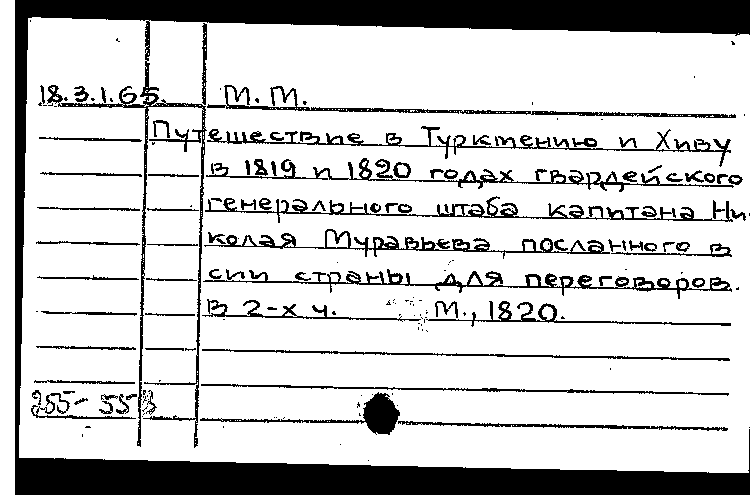 18.3.1.65. М.М.
Путешествие в Туркмению и Хиву
в 1819 и 1820 годах гвардейского
генерального штаба капитана Ни-
колая Муравьева, посланного в
сии страны для переговоров.
в 2-х ч. М., 1820.